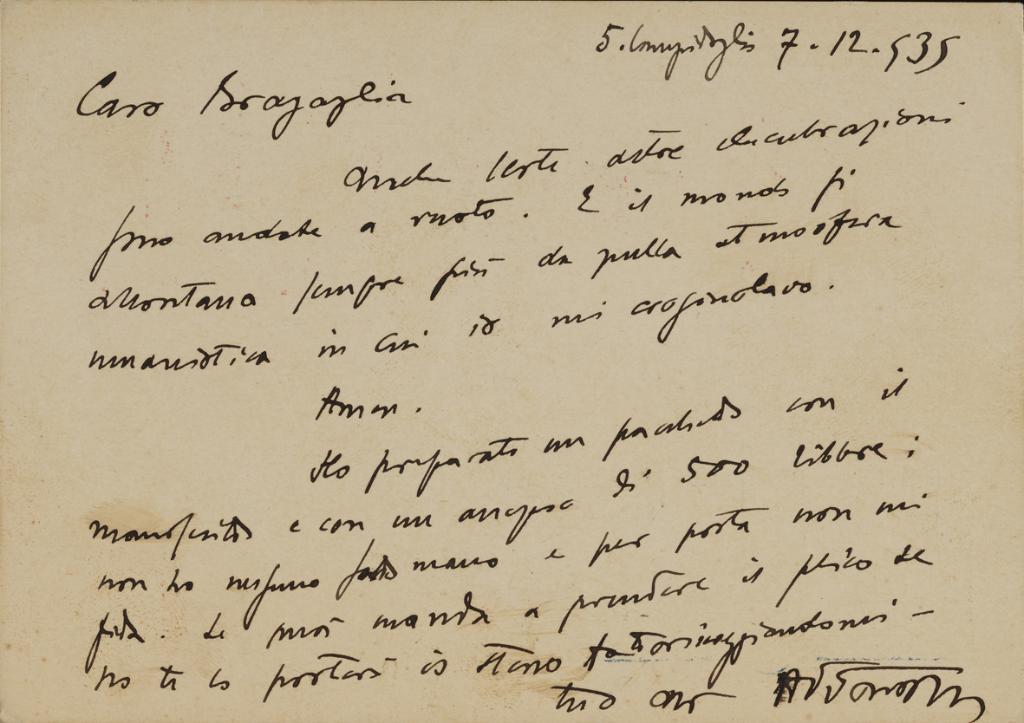 7.12.939
Caro Bragaglia
Anche queste altre elucubrazioni
sono andate a vuoto. E il mondo si
allontana sempre più da quella atmosfera
umanistica in cui io mi crogiuolavo.
Amen.
Ho preparato un pacchetto con il
manoscritto e con un di 500 libbre:
non ho nessuno sotto mano e per posta non mi
fido. Se puoi manda a prendere il plico se
no te lo porterò io stesso
tuo